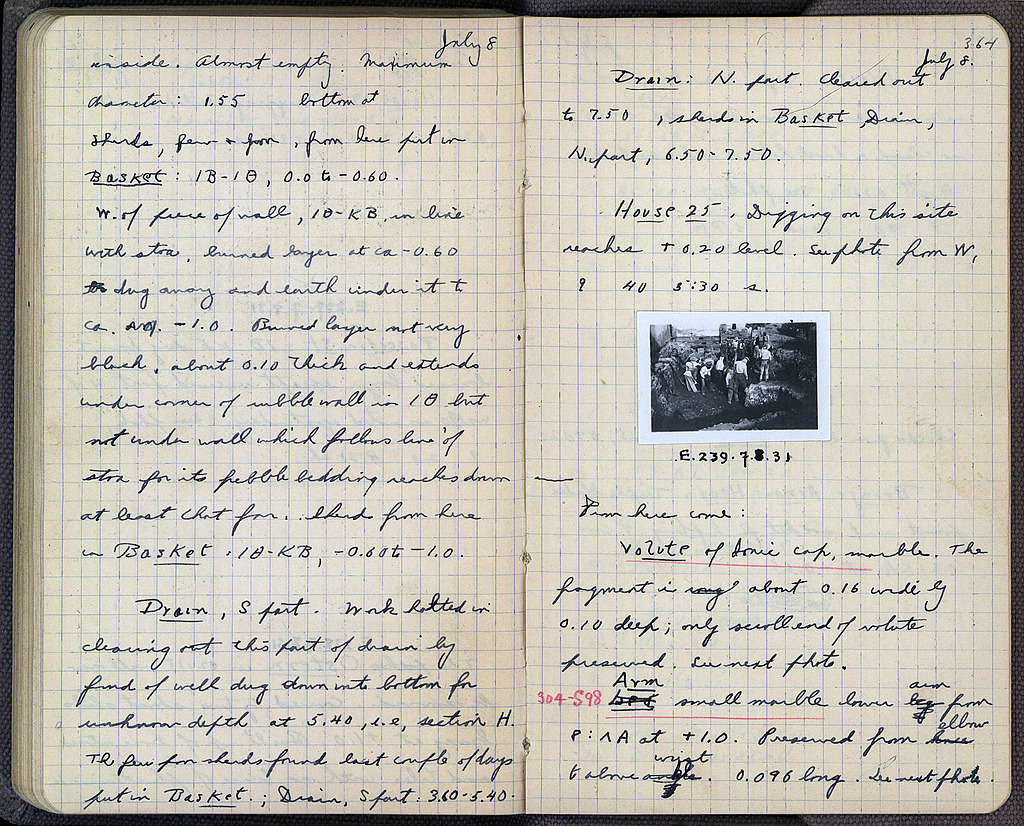 July 8
inside. Almost empty. Maximum
diameter: 1.55 bottom at
Sherds, few & poor, from here put in
Basket: ΙΒ-ΙΘ, 0.0 to -0.60.
W. of piece of wall, ΙΘ-ΚΒ, in line
with stoa, burned layer at ca -0.60
dug away and earth under it to
ca. -1.0. Burned layer not very
black, about 0.10 thick and extends
under corner of rubble wall in ΙΘ but
not under wall which follows line of
stoa for its pebble bedding reaches down
at least that far. Sherds from here
in Basket: ΙΘ-ΚΒ, -0.60 to -1.0.
Drain, S part. Work halted in
clearing out this part of drain by
find of well dug down into bottom for
unknown depth at 5.40, i.e., section H.
The few poor sherds found last couple of days
put in Basket.; Drain, S part: 3.60-5.40.
364
July 8.
Drain: N. part. Cleared out
to 7.50, sherds in Basket Drain,
N. part, 6.50-7.50.
House 25. Digging on this site
reaches + 0.20 level. See photo from W,
9 40 5:30 s.
E.239.7.8.31
From here come:
Volute of Ionic cap, marble. The
fragment is about 0.16 wide by
0.10 deep; only scroll end of volute
preserved. See next photo.
304-S98 Arm small marble lower arm from
Ρ:ΛΑ at +1.0. Preserved from elbow
to above wrist. 0.096 long. See next photo.